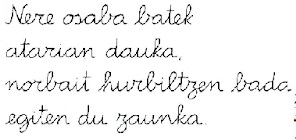 Nere osaba batek
atarian dauka,
norbait hurbiltzen bada
egiten du zaunka.